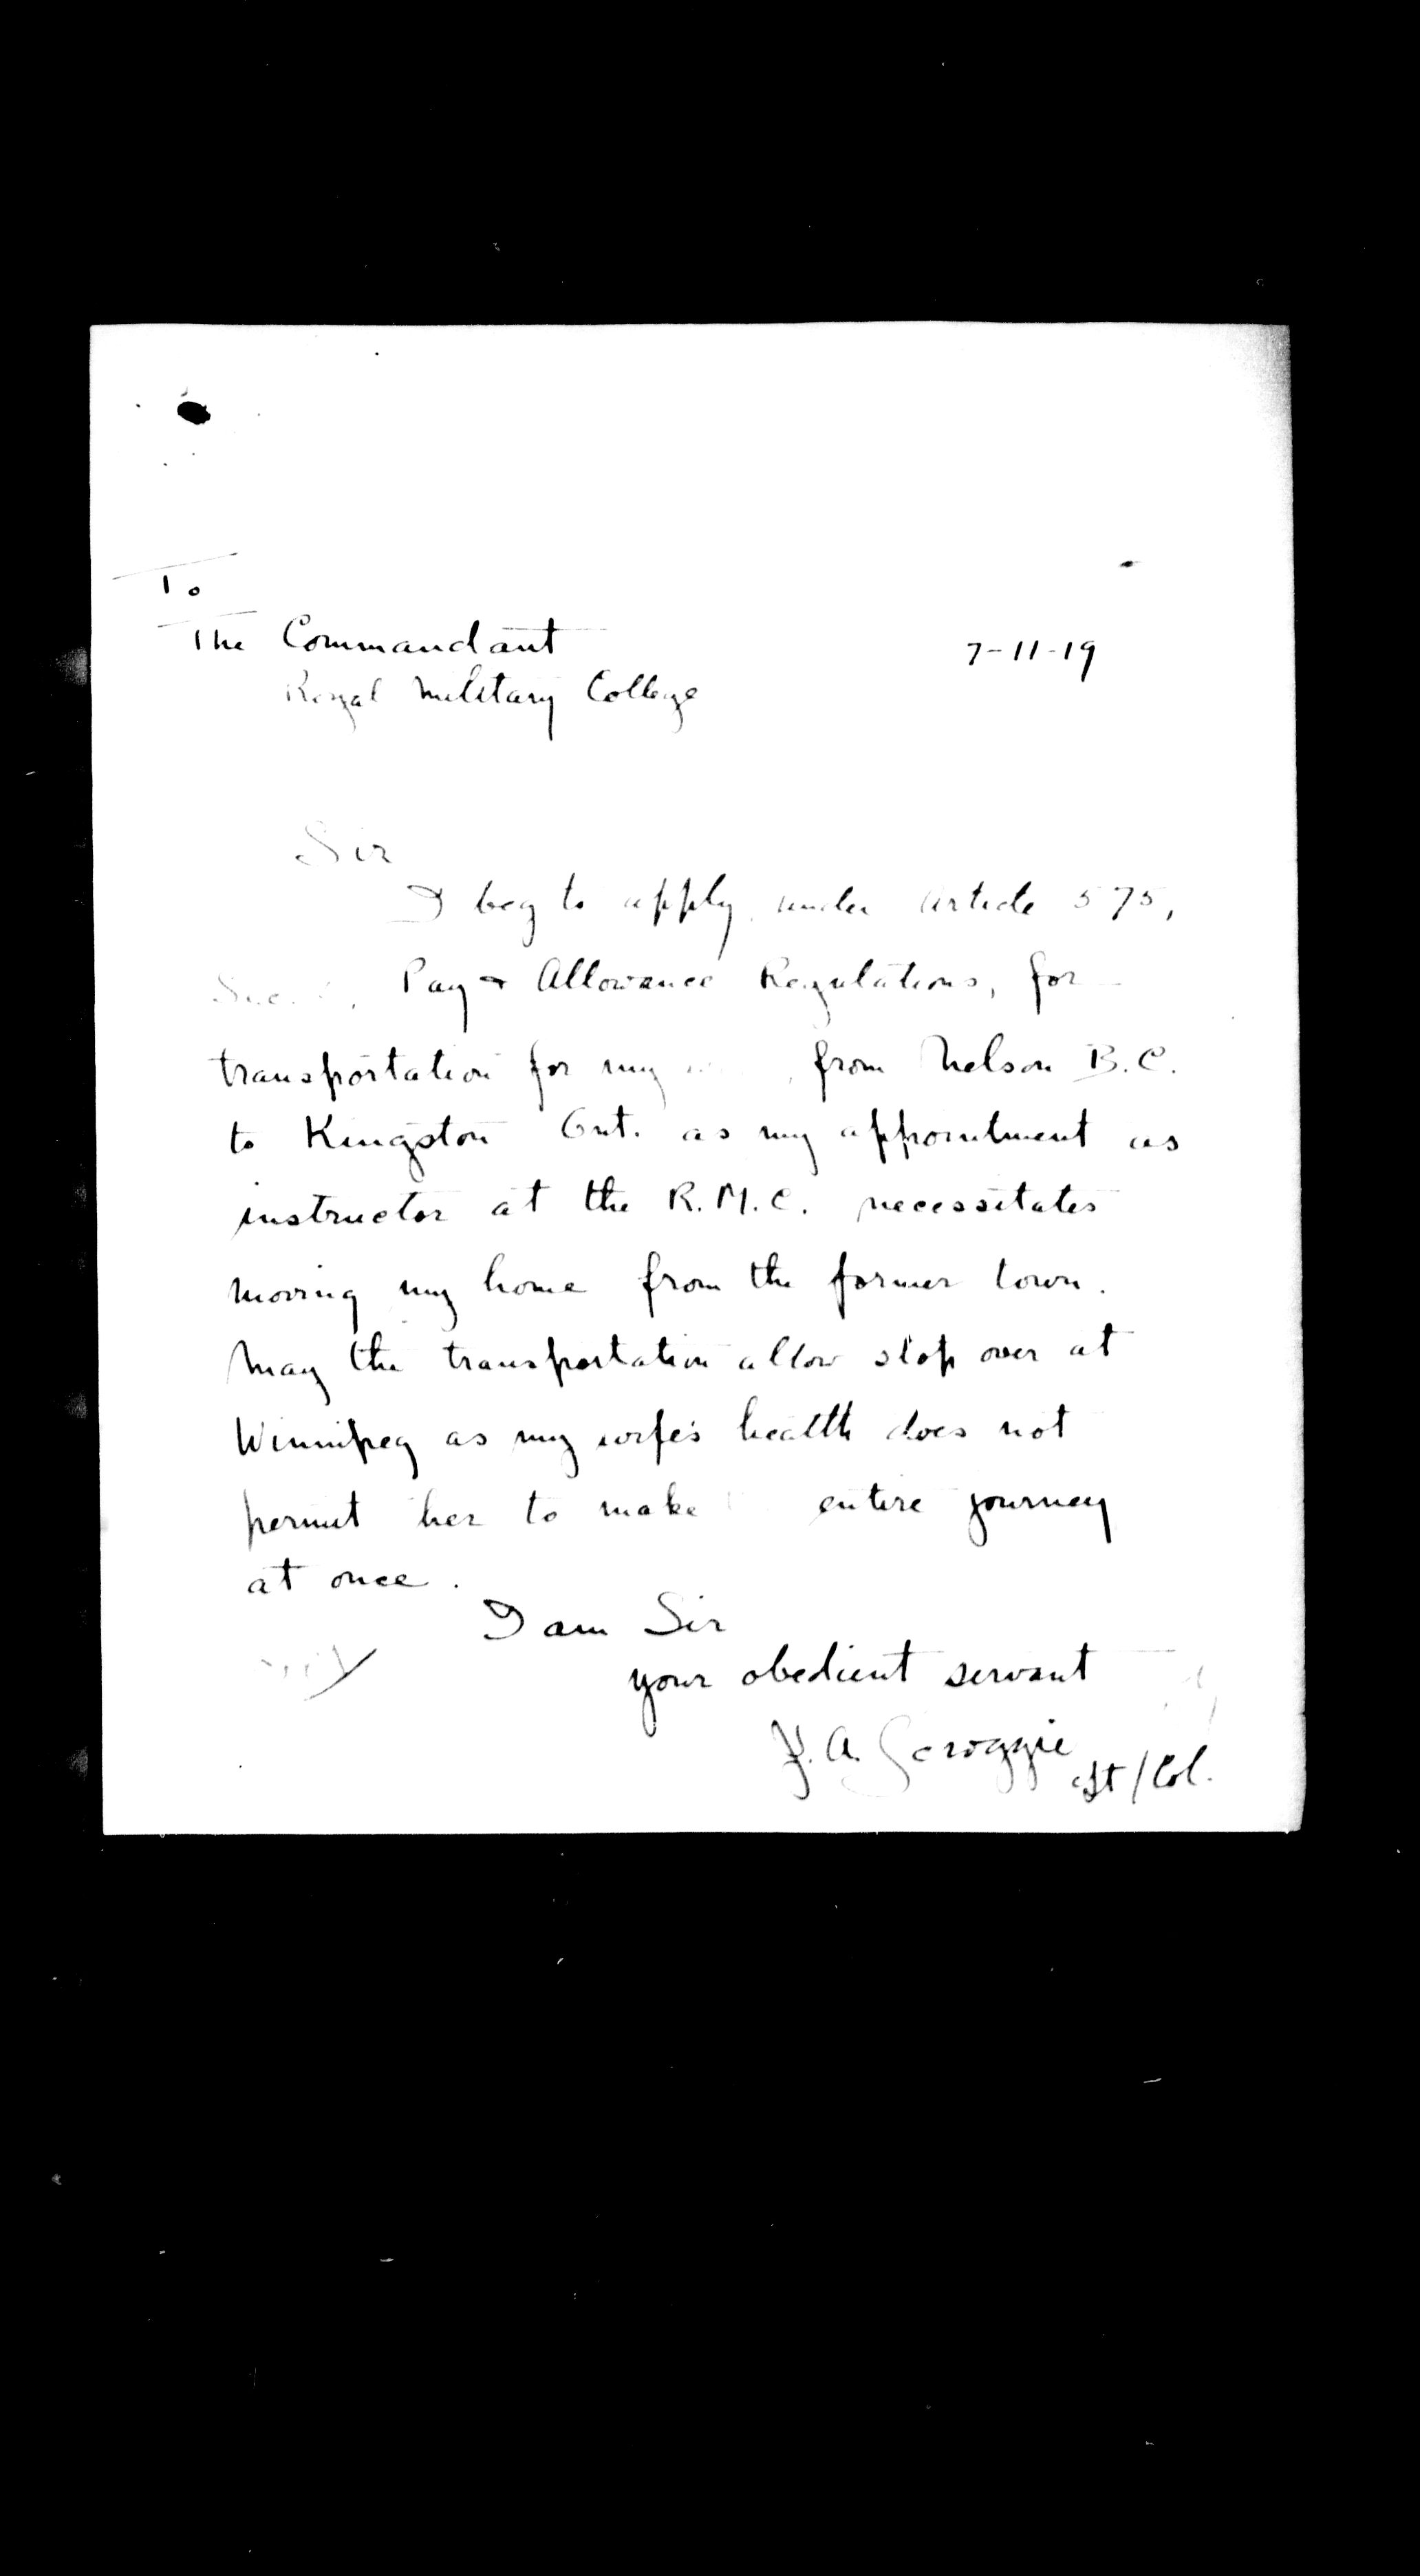 To
The Commandant
7-11-19
Royal Military College
Sir
I beg to apply under Article 575,
Pay & Allowance Regulations, for
transportation for my from Nelson B.C.
to Kingston Ont. as my appointment as
instructor at the R.M.C. necessitates
moving my home from the former town.
May the transportation allow stop over at
Winnipeg as my wife's health does not
permit her to make entire journey
at once.
I am Sir
your obedient servant
J. A. Scroggie
Lt/Col.